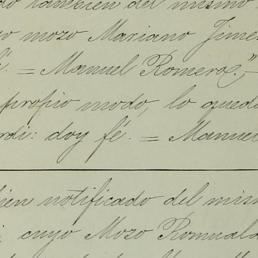 do tambien del mismo,
yo mozo Mariano Jime
é. = Manuel Romero."–
propio modo, lo queda
rdi: doy fé. = Manuel
bien notificado del mism
cuyo Mozo Romualdo